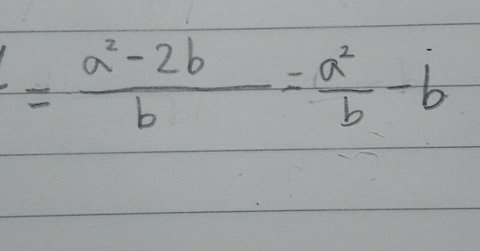 = \frac{a^2 - 2b}{b} = \frac{a^2}{b} - b